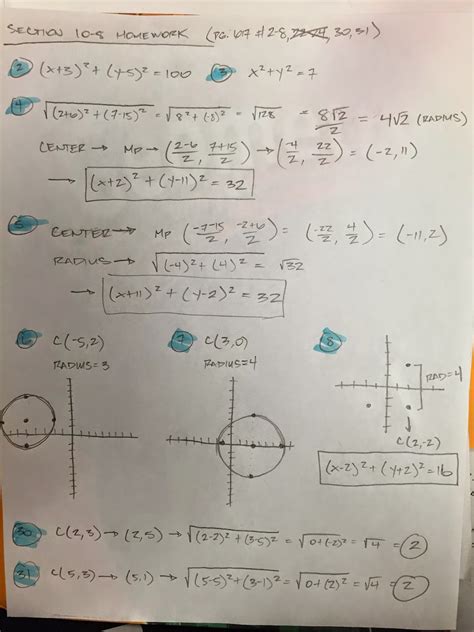 SECTION 10-8 HOMEWORK (PG. 617 #2-8, 30, 31)
2 (x+3)² + (y-5)² = 100 3 x² + y² = 7
4 √(2+6)² + (7-15)² = √8² + (-8)² = √128 = 8√2/2 = 4√2 (RADIUS)
CENTER → MP → (2-6/2, 7+15/2) → (-4/2, 22/2) = (-2, 11)
→ (x+2)² + (y-11)² = 32
5 CENTER → MP (-7-15/2, -2+6/2) = (-22/2, 4/2) = (-11, 2)
RADIUS → √(-4)² + (4)² = √32
→ (x+11)² + (y-2)² = 32
6 C(-5,2) 7 C(3,0) 8
RADIUS=3 RADIUS=4
RAD=4
C(2,-2)
(x-2)² + (y+2)² = 16
30 C(2,3) → (2,5) → √(2-2)² + (3-5)² = √0+(-2)² = √4 = 2
31 C(5,3) → (5,1) → √(5-5)² + (3-1)² = √0+(2)² = √4 = 2